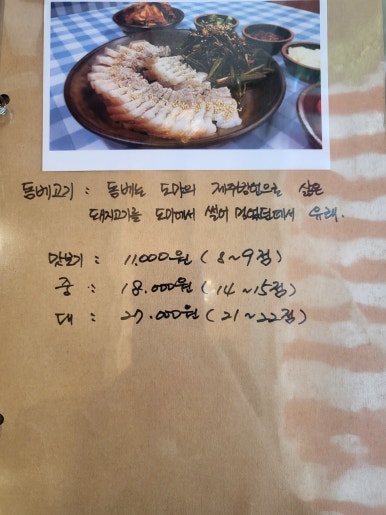 돔베고기 : 돔베는 도마의 제주방언으로 삶은
돼지고기를 도마에서 썰어 먹었던데서 유래.
맛보기 : 11,000원 (8~9점)
중 : 18,000원 (14~15점)
대 : 27,000원 (21~22점)